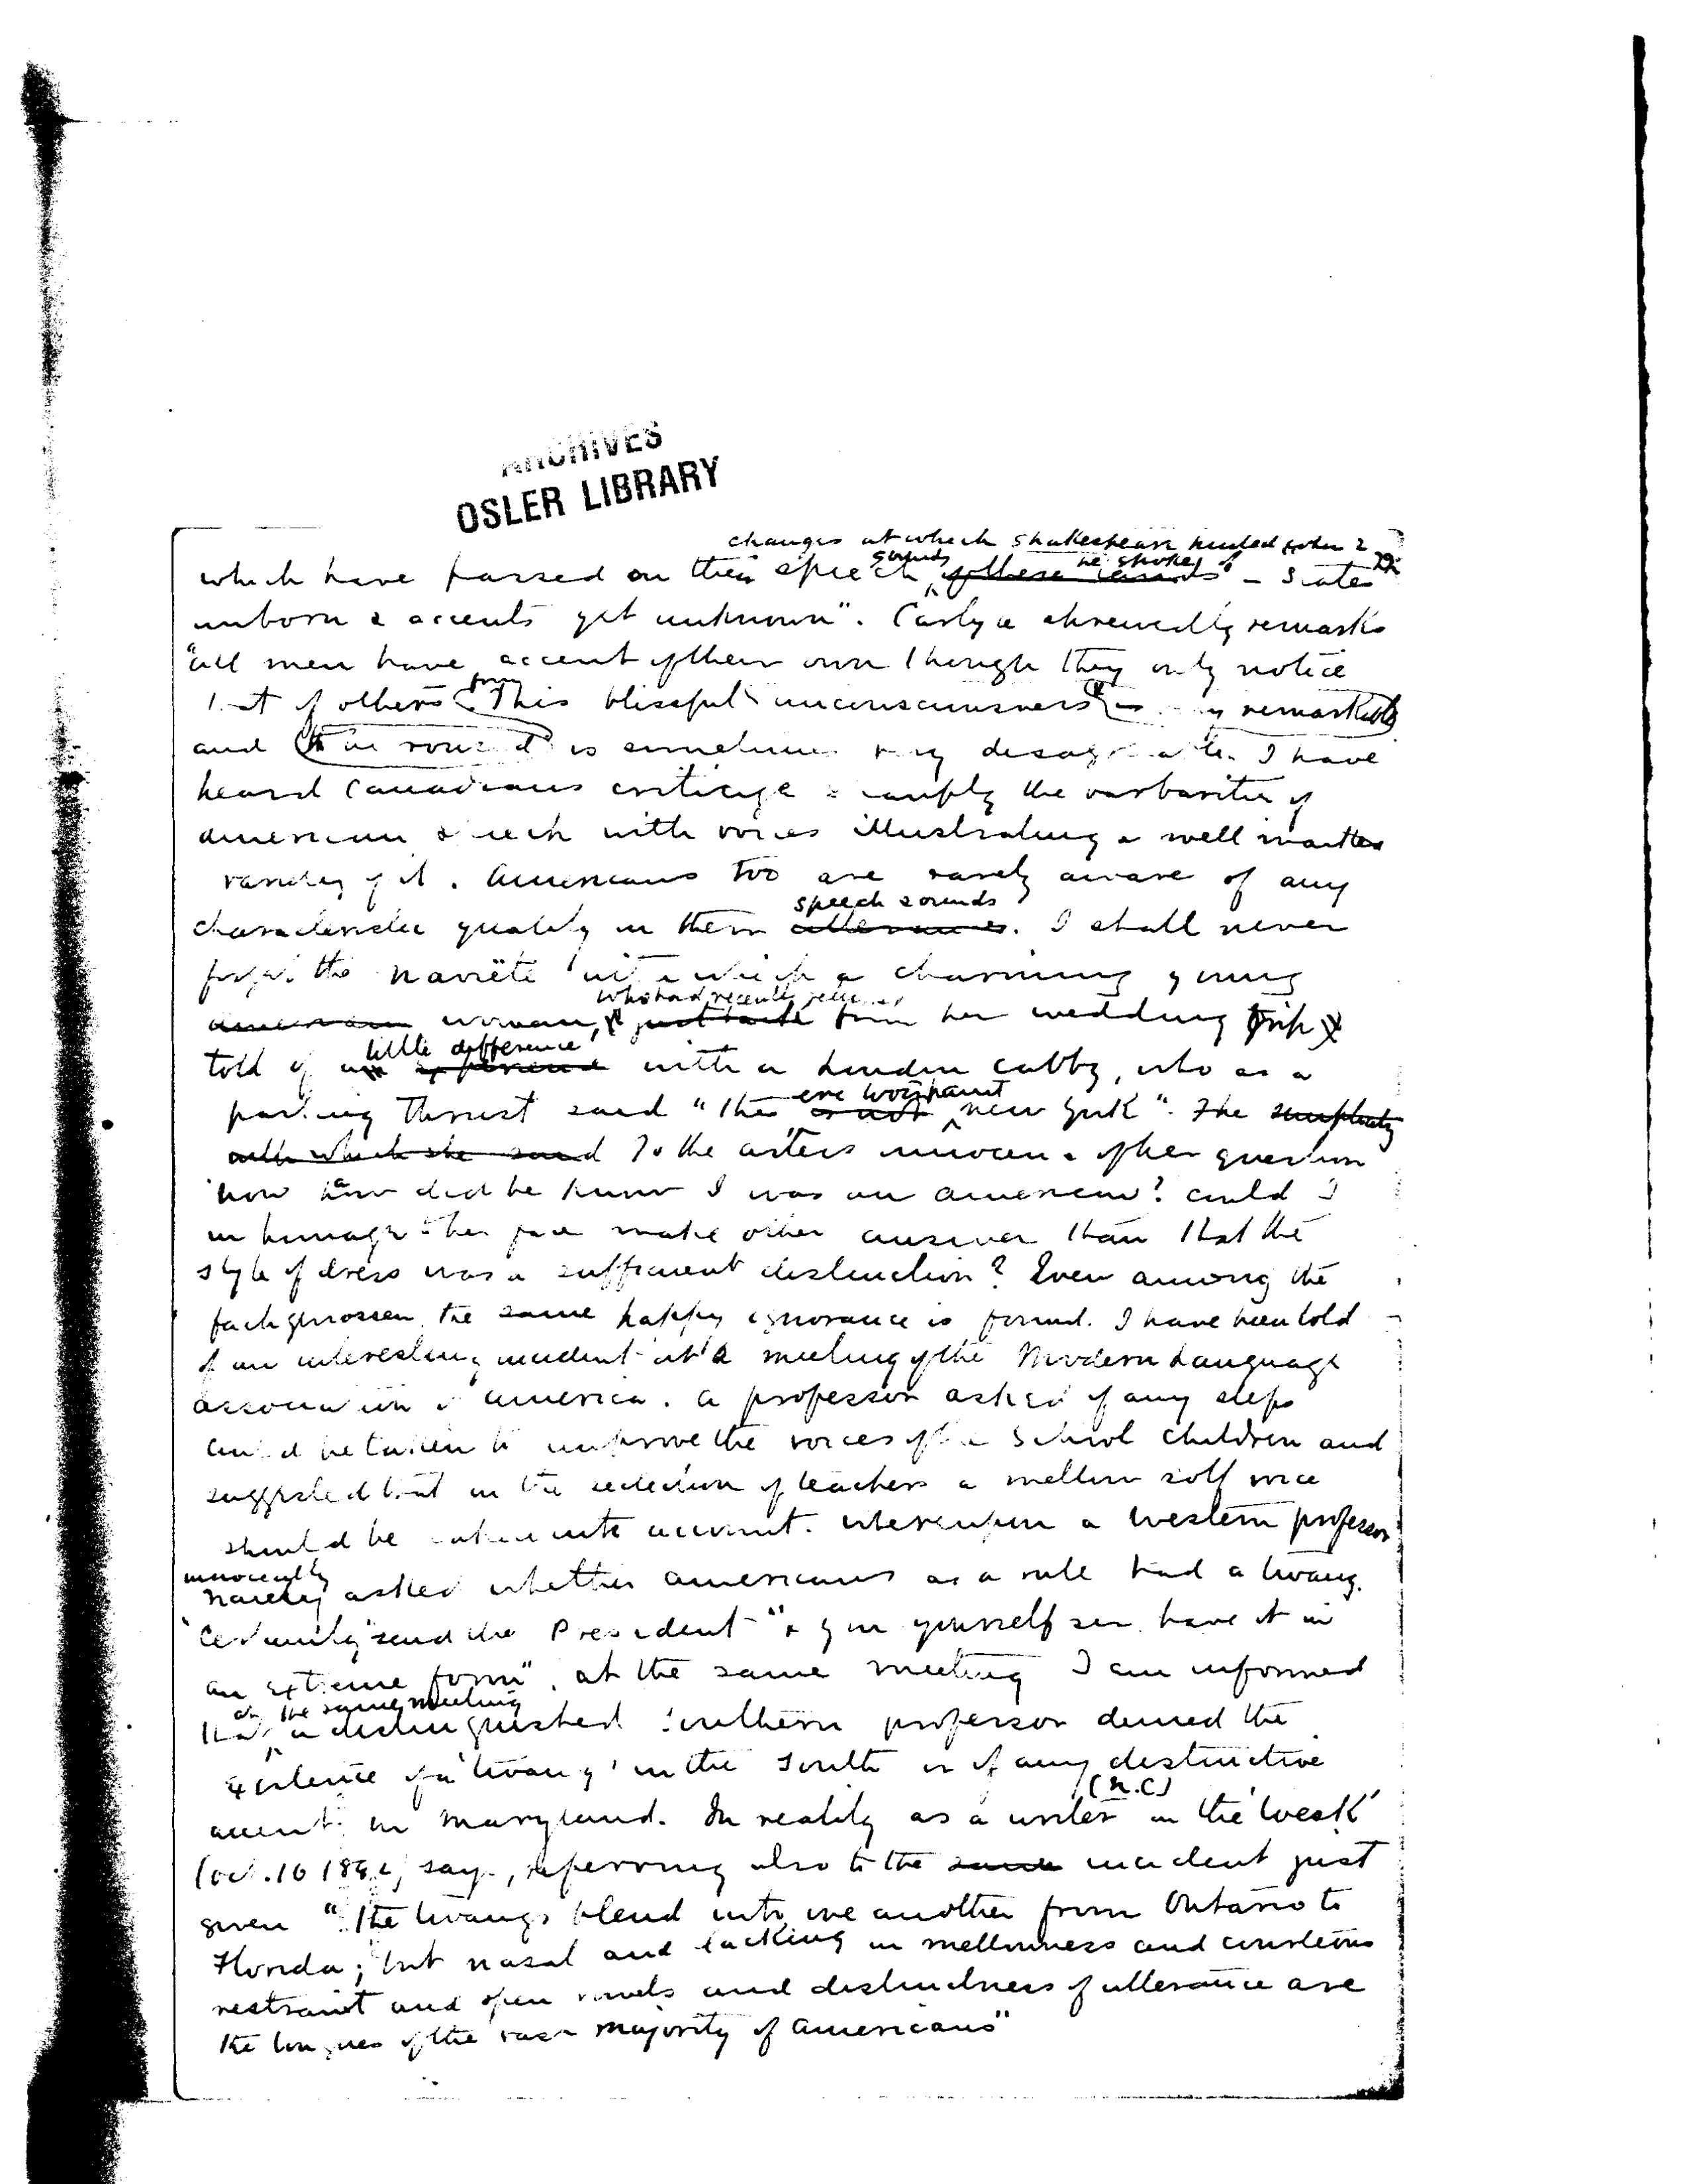 ARCHIVES
OSLER LIBRARY
changes at which Shakespeare hinted when
sounds he spoke of
which have passed on their speech, – States
unborn & accents yet unknown". Carlyle shrewdly remarks
"all men have accent of their own though they only notice
that of others This blissful unconsciousness is very remarkable
and is sometimes very disagreeable. I have
heard Canadians criticize the barbarities of
american speech with voices illustrating a well marked
variety of it. Americans too are rarely aware of any
speech sounds
characteristic quality in their utterances. I shall never
forget the naviëté with which a charming young
who had recently
american woman, just back from her wedding trip
little difference
told of an experience with a London cabby, who as a
one wots haunt
parting thrust said "the new York". The simplicity
with which she said To the artless innocence of her question
'how did he know I was an american? could I
in homage to her face make other answer than that the
style of dress was a sufficient distinction? Even among the
fachgenossen the same happy ignorance is found. I have been told
of an interesting incident at a meeting of the Modern Language
association of america. a professor asked if any steps
could be taken to improve the voices of the School children and
suggested that in the selection of teachers a mellow soft voice
should be taken into account. whereupon a western professor
innocently
naively asked whether americans as a rule had a twang.
'certainly' said the President "& you yourself sir have it in
an extreme form". at the same meeting I am informed
at the same meeting
that a distinguished Southern professor denied the
existence of a 'twang' in the South or of any distinctive
(N.C)
accent in Maryland. In reality as a writer in the 'Week'
(oct. 16 says, referring also to the same incident just
given "The twangs blend into one another from Ontario to
Florida; but nasal and lacking in mellowness and courteous
restraint and open vowels and distinctness of utterance are
the tongues of the vast majority of americans"